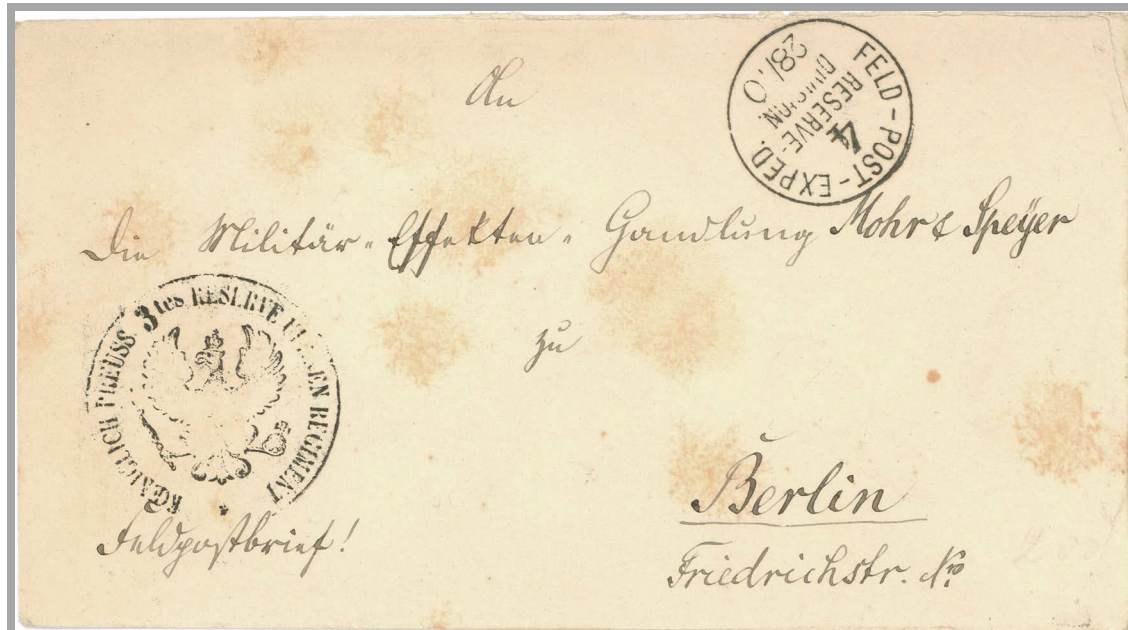 An
FELD-POST-EXPED.
4
RESERVE-
DIVISION.
28/10
Die Militär-Effekten-Handlung Mohr & Speyer
KÖNIGLICH PREUSS 3tes RESERVE ULANEN REGIMENT
zu
Berlin
Feldpostbrief!
Friedrichstr. No